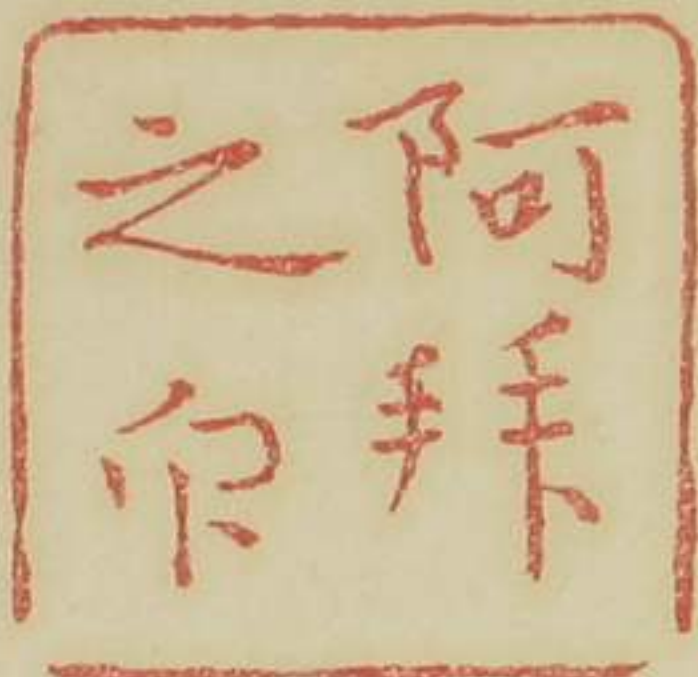 阿拜
之印